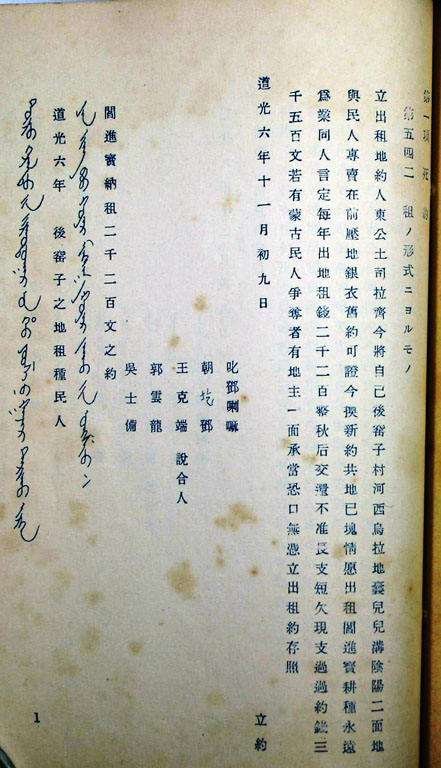 第一項 死約
第五四二 租ノ形式ニヨルモノ
立出租地約人東公土司拉齊今將自己後窰子村河西烏拉地嚢兒兒溝陰陽二面地
與民人専賣在前壓地銀衣舊約可證今換新約共地已塊情愿出租閻進寳耕種永遠
爲業同人言定每年出地租錢二千二百整秋后交還不准長支短欠現支過過約錢三
千五百文若有蒙古民人爭奪者有地主一面承當恐口無憑立出租約存照
道光六年十一月初九日 立約
叱鄧喇嘛
朝圪鄧
王克端 說合人
郭雲龍
吳士備
閻進寳納租二千二百文之約
道光六年 後窰子之地租種民人
1